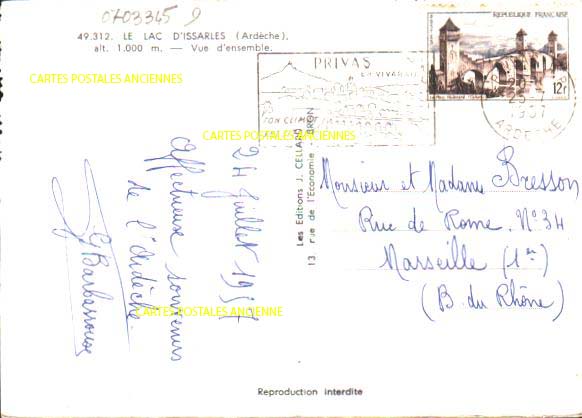 0703345
49.312. LE LAC D'ISSARLES (Ardèche).
alt. 1.000 m. — Vue d'ensemble.
CARTES POSTALES ANCIENNES
REPUBLIQUE FRANÇAISE
12F
PRIVAS
EN VIVARAIS
SON CLIMAT
25-7
1957
ARDECHE
CARTES POSTALES ANCIENNES
24 Juillet 1957
Affectueux souvenirs
de l'Ardèche.
G Barbarroux
Les Editions J. CELLARD
13, rue de l'Economie - BRON
Monsieur et Madame Bresson
Rue de Rome. N° 34
Marseille (1er)
(B. du Rhône)
CARTES POSTALES ANCIENNE
Reproduction interdite